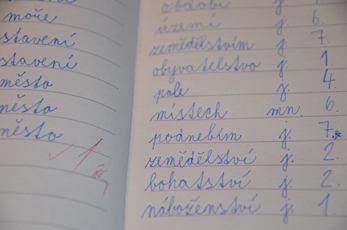 moře
stavení
stavení
město
město
město
1
období j.
území j. 6.
zemědělstvím j. 7.
obyvatelstvo j. 1.
pole j. 4.
místech mn. 6.
podnebím j. 7.
zemědělství j. 2.
bohatství j. 2.
náboženství j. 1.